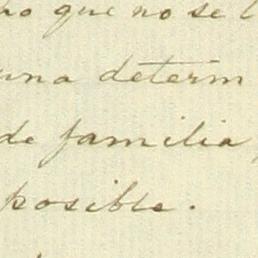 ho que no se l
una determ
de familia,
posible.